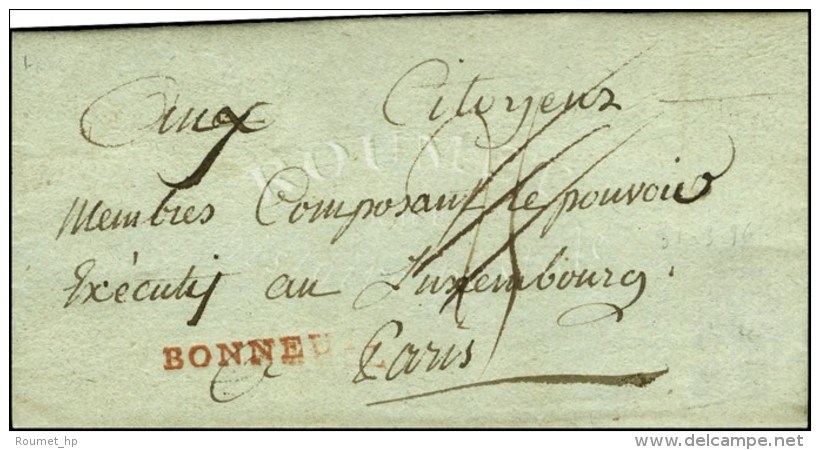 Aux Citoyens
Membres Composant le pouvoir
Exécutif au Luxembourg.
BONNE
a Paris
Roumet_hp
www.delcampe.net